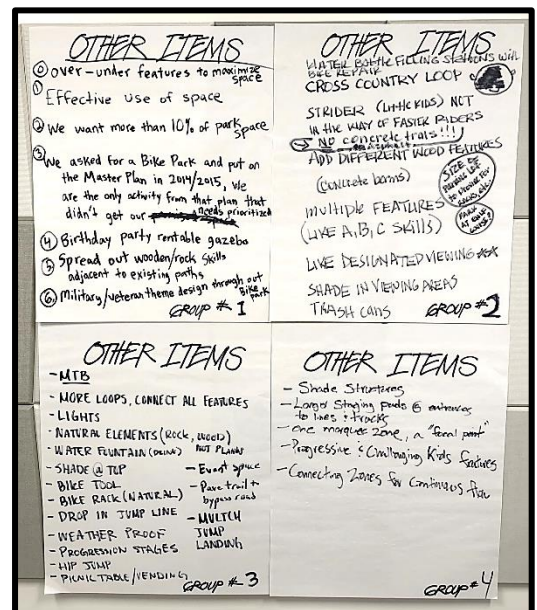 OTHER ITEMS
⓪ over-under features to maximize
space
① Effective use of space
② We want more than 10% of park
space
③ We asked for a Bike Park and put on
the Master Plan in 2014/2015, we
are the only activity from that plan that
didn't get our needs prioritized
④ Birthday party rentable gazebo
⑤ Spread out wooden/rock skills
adjacent to existing paths
⑥ Military/veteran theme design through out
Bike
park
GROUP # 1
OTHER ITEMS
WATER BOTTLE FILLING STATIONS with
BIKE REPAIR
CROSS COUNTRY LOOP
STRIDER (Little KIDS) NOT
IN THE WAY OF FASTER RIDERS
NO concrete trails!!!
ADD DIFFERENT WOOD FEATURES
(concrete berms)
SIZE OF
PARKING LOT
MULTIPLE FEATURES
(LIKE A, B, C SKILLS)
PARK
AT
LIVE DESIGNATED VIEWING
SHADE IN VIEWING AREAS
TRASH CANS
GROUP # 2
OTHER ITEMS
- MTB
- MORE LOOPS, CONNECT ALL FEATURES
- LIGHTS
- NATURAL ELEMENTS (ROCK, WOOD)
NOT PLANKS
- WATER FOUNTAIN (DRINK)
- SHADE @ TOP
- BIKE TOOL
- BIKE RACK (NATURAL)
- DROP IN JUMP LINE
- WEATHER PROOF
- PROGRESSION STAGES
- HIP JUMP
- PICNIC TABLE/VENDING
- Event space
- Pave trail +
bypass road
- MULTCH
JUMP
LANDING
GROUP # 3
OTHER ITEMS
- Shade Structures
- Larger Staging pads @ entrances
to lines & tracks
- one marquee zone, a "focal point"
- Progressive & Challenging Kids features
- Connecting Zones for Continuous flow
GROUP # 4